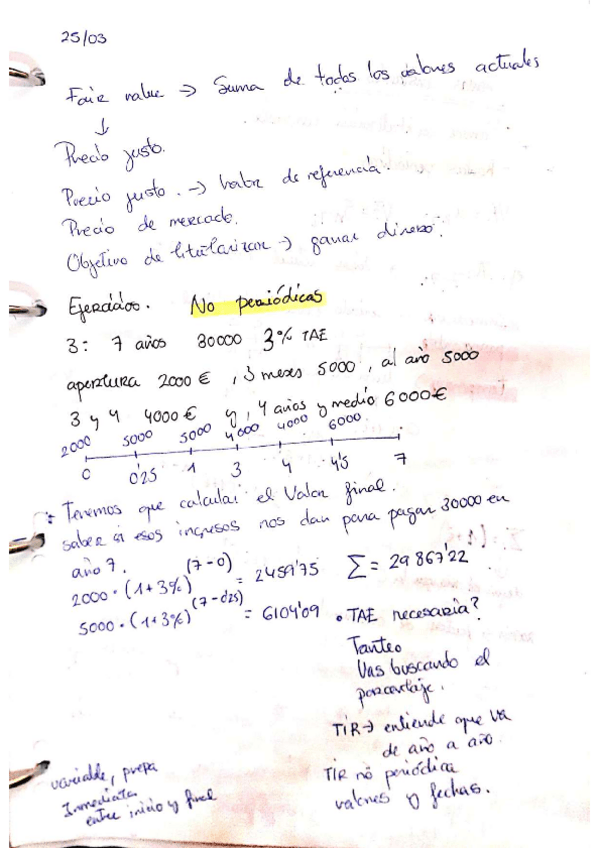 25/03
Fair value → Suma de todos los valores actuales
↓
Precio justo.
Precio justo. → Valor de referencia.
Precio de mercado.
Objetivo de titularizar → ganar dinero.
Ejercicios. No periódicas
3: 7 años 30000 3% TAE
apertura 2000 €, 3 meses 5000, al año 5000
3 y 4 4000 € y, 4 años y medio 6000 €
2000 5000 5000 4000 4000 6000
0 0'25 1 3 4 4'5 7
Tenemos que calcular el Valor final.
saber si esos ingresos nos dan para pagar 30000 en
año 7.
2000 · (1+3%)^(7-0) = 2459'75
5000 · (1+3%)^(7-0'25) = 6104'09
Σ = 29867'22
• TAE necesaria?
Tanteo
Vas buscando el
porcentaje.
TIR → entiende que va
de año a año.
TIR no periódica
valores y fechas.
variable, prepa
Inmediata
entre inicio y final